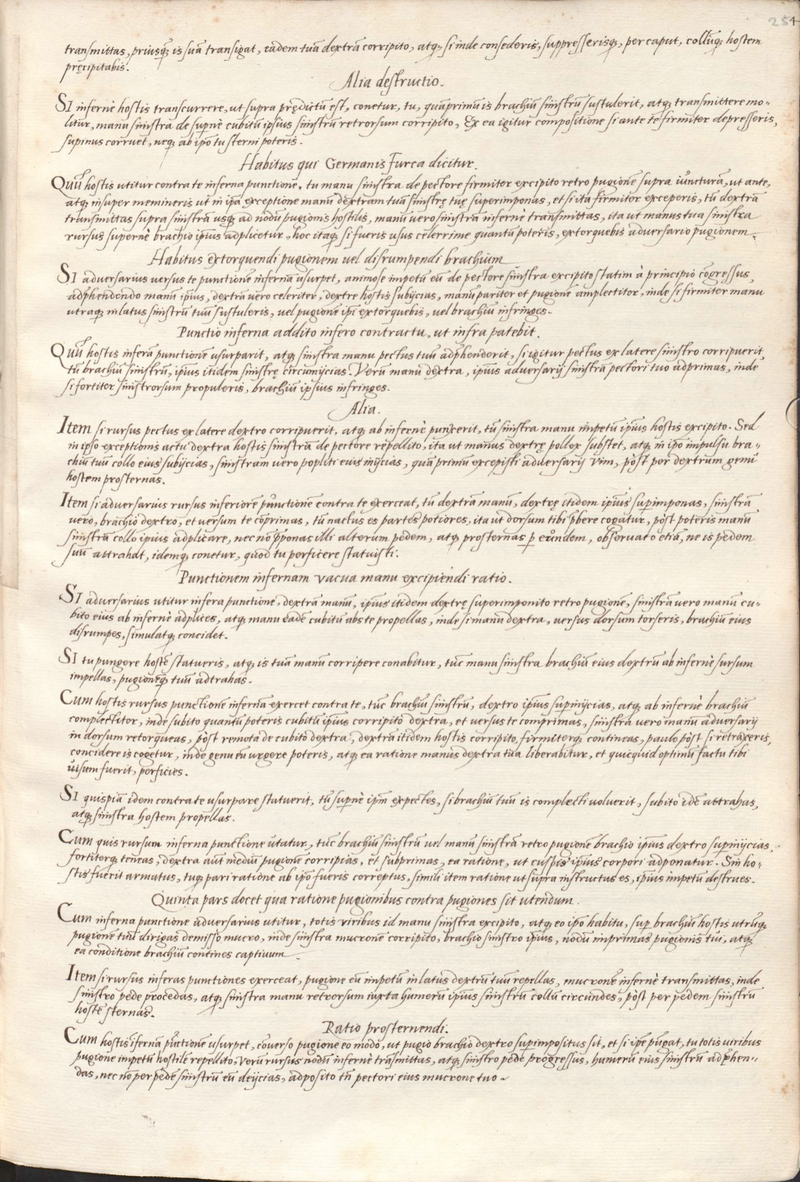 254
transmittas, priusq̃ is suã transigat, eadem tua dextra corripito, atq; si inde consederis, suppresserisq;, per caput, collũq; hostem
pręcipitabis.
Alia destructio.
SI infernè hostis transcurrere, ut supra prędictũ est, conetur, tu, quãprimũ is brachiũ sinistrũ sustulerit, atq; transmittere mo-
litur, manu sinistra de supernè cubitũ ipsius sinistrũ retrorsum corripito, Ex ea igitur compositione si ante te firmiter depresseris,
supinus corruet, neq; ab ipso tu sterni poteris.
Habitus qui Germanis furca dicitur.
Quũ hostis utitur contra te inferna punctione, tu manu sinistra de pectore firmiter excipito retro pugione supra iũncturã, ut ante,
atq; insuper memineris ut in ipsa exceptione manũ dextram tuã sinistrę tuę superimponas, et si ita firmiter exceperis, tũ dextrã
transmittas supra sinistrã usq; ad nodũ pugionis hostilis, manũ vero sinistrã infernè transmittas, ita ut manus tua sinistra
rursus supernè brachio ipsius adplicetur, hoc itaq; si fueris usus celerrime quantũ poteris, extorquebis adversario pugionem.
Habitus extorquendi pugionem vel disrumpendi brachium
SI adversarius versus te punctione infernã usurpet, animose impetũ eũ de pectore sinistra excipito statim à principio cõgressus,
adphendendo manũ ipsius, dextrã vero celeriter, dextrę hostis subijcias, manũ pariter et pugionẽ amplectitor, inde si firmiter manu
utraq; in latus sinistrũ tuũ sustuleris, vel pugionẽ ipsi extorquebis, vel brachiũ infringes.
Punctio inferna addito infero contractu, ut infra patebit.
Quũ hostis inferã punctionẽ usurparit, atq; sinistra manu pectus tuũ adphenderit, si igitur pectus ex latere sinistro corripuerit,
tũ brachiũ sinistrũ, ipsius itidem sinistrę circumijcias. Verũ manũ dextra, ipsius adversarij sinistrã pectori tuo adprimas, inde
si fortiter sinistrorsum propuleris, brachiũ ipsius infringes.
Alia.
Item si rursus pectus ex latere dextro corripuerit, atq; ab infernè punxerit, tũ sinistra manu impetũ ipsius hostis excipito. Sed
in ipso exceptionis actu dextra hostis sinistrã de pectore repellito, ita ut manus dextrę pollex substet, atq; in ipso impulsu bra-
chiũ tuũ collo eius subijcias, sinistram vero popliti eius inijcias, quã primũ excepisti adversarij vim, pòst per dextrum genu
hostem prosternas.
Item si adversarius rursus inferiorẽ punctionẽ contra te exerceat, tũ dextrã manũ, dextrę itidem ipsius supimponas, sinistrã
vero, brachio dextro, et versum te cõprimas, tũ nactus es partes potiores, ita ut dorsum tibi pbere cogatur, pòst poteris manũ
sinistrã collo ipsius adplicare, nec nõ ponas illi alterum pedem, atq; prosternas p eundem, observato etiã, ne is pedem
suũ attrahat, idemq; conetur, quod tu perficere statuisti.
Punctionem infernam vacua manu excipiendi ratio.
SI adversarius utitur infera punctione, dextrã manũ, ipsius itidem dextrę superimponito retro pugionẽ, sinistrã vero manũ cu-
bito eius ab infernè adplices, atq; manu eadẽ cubitũ abs te propellas, inde si manũ dextra, versus dorsum torseris, brachiũ eius
disrumpes, simulatq; concidet.
SI tu pungere hostẽ statueris, atq; is tuã manũ corripere conabitur, tũc manu sinistra brachiũ eius dextrũ ab infernè sursum
impellas, pugionẽq; tuũ adtrahas.
Cum hostis rursus punctionẽ infernã exercet contra te, tũc brachiũ sinistrũ, dextro ipsius supinijcias, atq; ab infernè brachiũ
complectitor, inde subito quantũ poteris cubitũ ipsius corripito dextra, et versus te comprimas, sinistrã vero manũ adversarij
in dorsum retorqueas, pòst remota de cubito dextra, dextrã itidem hostis corripito, firmiterq; contineas, paulo pòst si retraxeris,
concidere is cogetur, inde genu eũ urgere poteris, atq; ea ratione manus dextra tua liberabitur, et quicquid optimũ factu tibi
visum fuerit, perficies.
SI quispiã idem contra te usurpare statuerit, tũ supernè ipsum expectes, si brachiũ tuũ is complecti voluerit, subito idẽ attrahas,
atq; sinistra hostem propellas.
Cum quis rursum inferna punctione utatur, tũc brachiũ sinistrũ vel manũ sinistrã retro pugionẽ brachio ipsius dextro supinijcias,
fortiterq; teneas, dextra aũt mediũ pugionẽ corripias, et subprimas, ea ratione, ut cuspis ipsius corpori adponatur. Sin ho-
stis fuerit armatus, tuq; pari ratione ab ipso fueris correptus, simili item ratione ut supra instructus es, ipsius impetũ destrues.
Quinta pars docet qua ratione pugionibus contra pugiones sit utendum.
Cum inferna punctione adversarius utitur, totis viribus id manu sinistra excipito, atq; eo ipso habitu, sup brachiũ hostis utrũq;
pugionẽ tuũ dirigas demisso mucro, inde sinistra mucronẽ corripito, brachio sinistro ipsius, nodũ imprimas pugionis tui, atq;
ea conditione brachiũ contines captivum.
Item si rursus inferas punctiones exerceat, pugione eũ impetũ in latus dextrũ tuũ repellas, mucronẽ infernè transmittas, inde
sinistro pede procedas, atq; sinistra manu retrorsum iuxta humerũ ipsius sinistrũ collũ circundes, pòst per pedem sinistrũ
hostẽ sternas.
Ratio prosternendi.
Cum hostis infernã pũctione usurpet, cõverso pugione eo modo, ut pugio brachio dextro supimpositus sit, et si ipse pũgat, tu totis viribus
pugione impetũ hostilẽ repellito, verũ rursus nodũ infernè trãsmittas, atq; sinistro pede progressus, humerũ eius sinistrũ adphen-
das, nec nõ per pedẽ sinistrũ eũ deijcias, adposito tñ pectori eius mucrone tuo